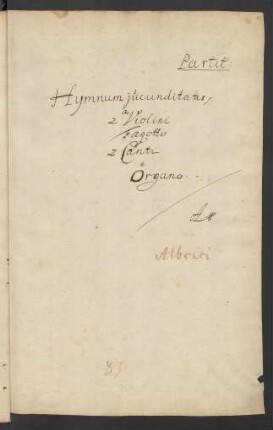 Partit.
Hymnum jucunditatis,
a
2 Violini
Fagotto
e
2 Canti
e
Organo.
Albrici